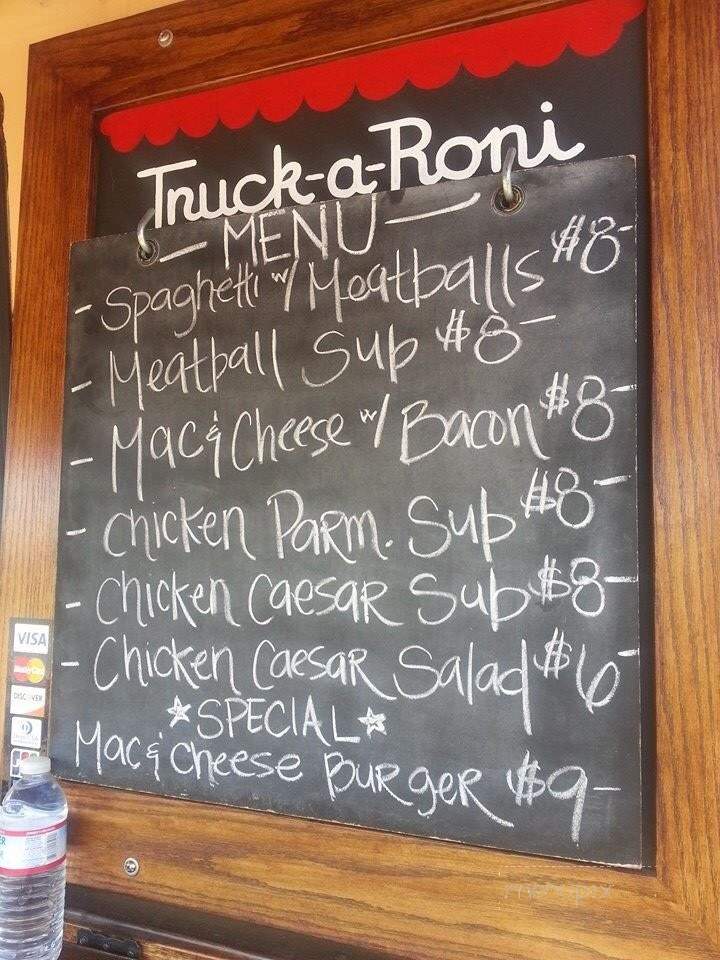 Truck-a-Roni
- MENU -
- Spaghetti w/ Meatballs $8-
- Meatball Sub $8-
- Mac & Cheese w/ Bacon $8-
- Chicken Parm. Sub $8-
- Chicken Caesar Sub $8-
- Chicken Caesar Salad $6-
☆SPECIAL☆
Mac & Cheese Burger $9-
VISA
MasterCard
DISCOVER
menupix